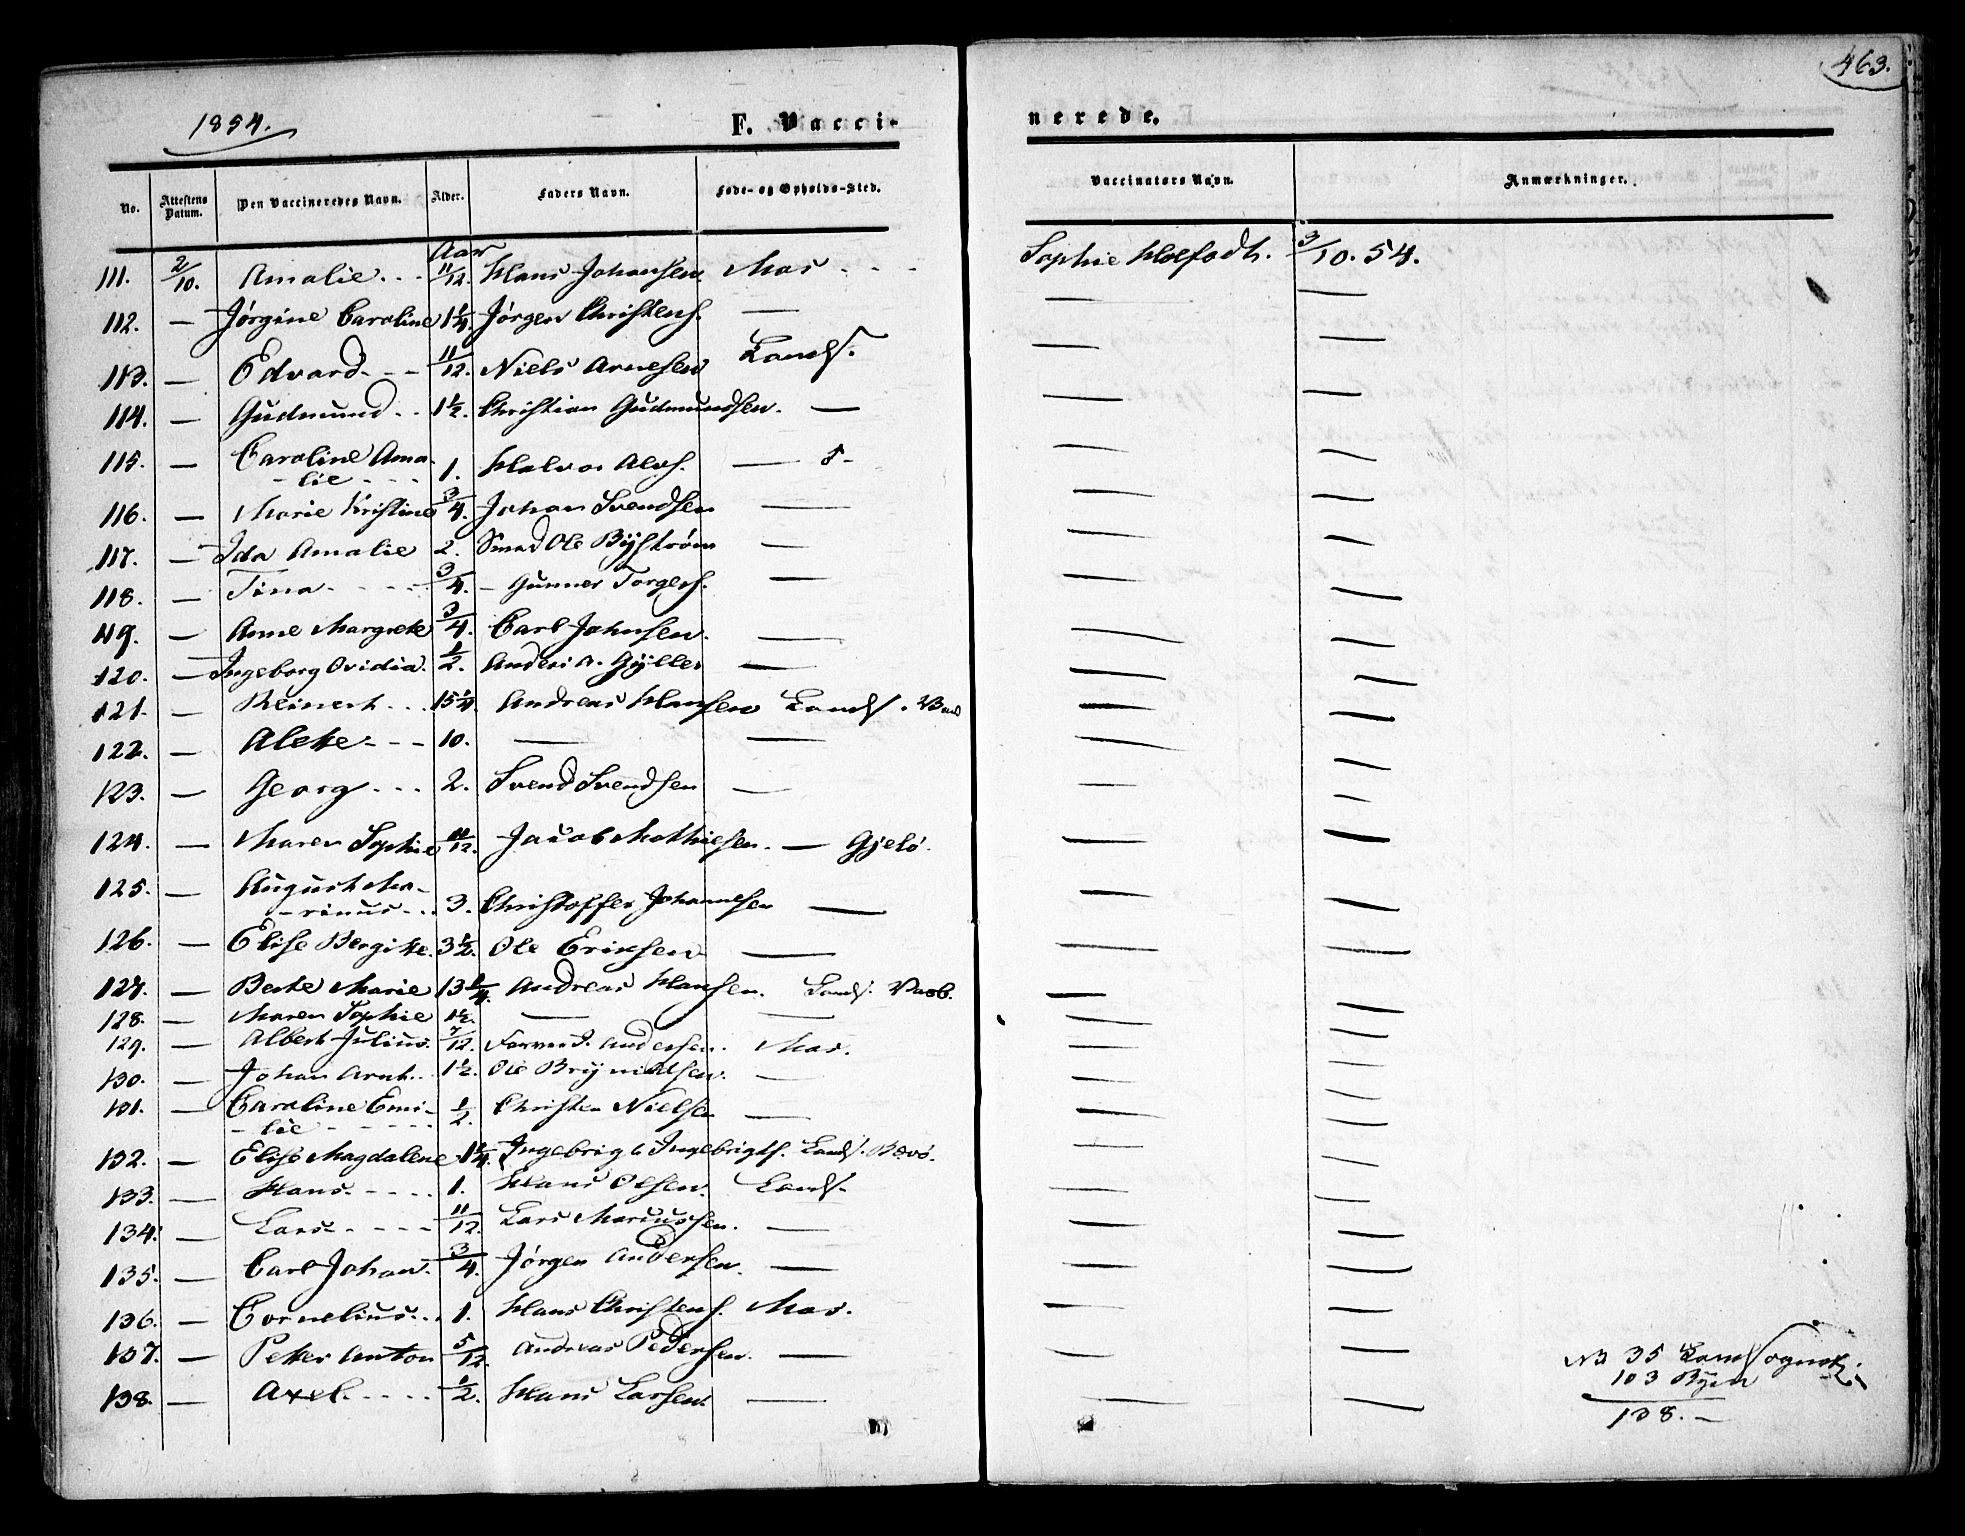 463.
1854.
F. Vacci-
nerede.
No. Attestens Datum. Den Vaccineredes Navn. Alder. Faders Navn. Føde- og Opholds-Sted. Vaccinators Navn. Anmærkninger.
Aar
111. 2/10. Amalie 11/12. Hans Johansen. Mos Sophie Holfodt. 3/10. 54.
112. — Jørgine Caroline 1 1/4. Jørgen Christens. — — —
113. — Edvard 11/12. Niels Arnesen Lands. — —
114. — Gudmund 1 1/2. Christian Gudmundsen. — — —
115. — Caroline Ama-
lie 1. Halvor Alexs. — — —
116. — Marie Kristine 3/4. Johan Svendsen — — —
117. — Ida Amalie 2. Smed Ole Byström — — —
118. — Tina 3/4. — Gunner Torgers. — — —
119. — Anne Margrete 3/4. Carl Johnsen. — — —
120. — Ingeborg Ovidia. 1/2. Anders A. Gyller — — —
121. — Reinert 15 1/4. Andreas Hansen Lands. — —
122. — Alete 10. — — — —
123. — Georg 2. Svend Svendsen — — —
124. — Maren Sophie 10/12. Jacob Mathiesen. — Gjelö. — —
125. — August Ma-
rinus 3. Christoffer Johannesen — — —
126. — Elise Bergite. 3 1/2. Ole Eriksen — — —
127. — Berte Marie 13 1/4. Andreas Hansen. Lands. — —
128. — Maren Sophie 1 1/2. — — — —
129. — Albert Julius. 7/12. Farver J. Andersen. Mos. — —
130. — Johan Arnt. 1 1/2. Ole Brynildsen. — — —
131. — Caroline Emi-
lie 1/2. Christen Nielsen — — —
132. — Elise Magdalene 1 1/4. Ingebrigt Ingebrigts. Lands. — —
133. — Hans 1. Hans Olsen. Lands. — —
134. — Lars 11/12. Lars Marcussen. — — —
135. — Carl Johan. 3/4. Jørgen Andersen. — — —
136. — Cornelius 1. Hans Christens. Mos. — —
137. — Peter Anton 5/12. Andreas Pedersen. — — —
138. — Axel 1/2. Hans Larsen. — — —
NB 35 Landsognet.
103 Byen
138. —